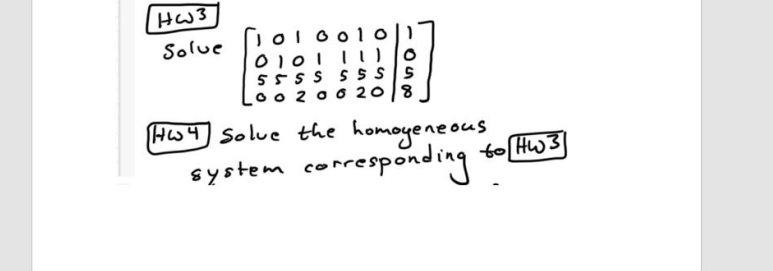 HW3
Solve [1 0 1 0 0 1 0 | 1
0 1 0 1 1 1 1 | 0
5 5 5 5 5 5 5 | 5
0 0 2 0 0 2 0 | 8]
HW4 Solve the homogeneous
system corresponding to HW3